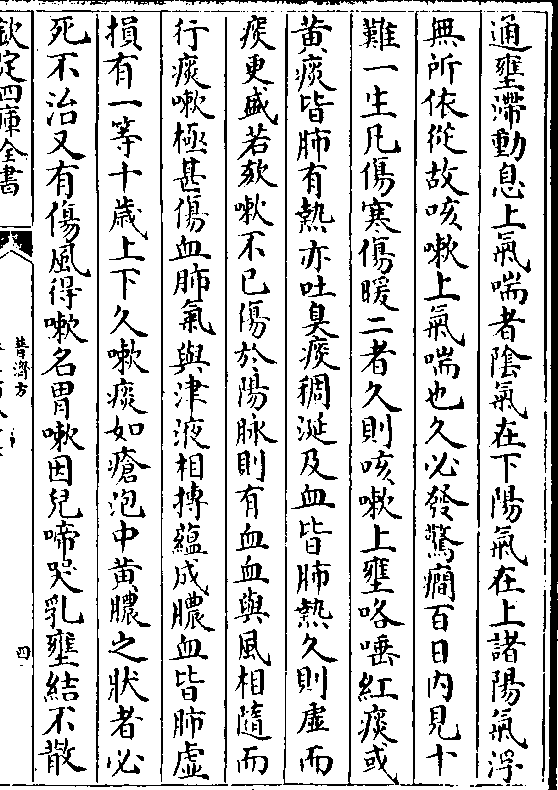 通壅滯動息上氣喘者陰氣在下陽氣在上諸陽氣浮
無所依從故咳嗽上氣喘也久必發驚癇百日內見十
難一生凡傷寒傷暖二者久則咳嗽上壅咯唾紅痰或
黃痰皆肺有熱亦吐臭痰稠涎及血皆肺熱久則虛而
痰更盛若欬嗽不已傷於陽脉則有血血與風相隨而
行痰嗽極甚傷血肺氣與津液相搏蘊成膿血皆肺虛
損有一等十歲上下久嗽痰如瘡泡中黃膿之狀者必
死不治又有傷風得嗽名胃嗽因兒啼哭乳壅結不散
欽定四庫全書
普濟方
四